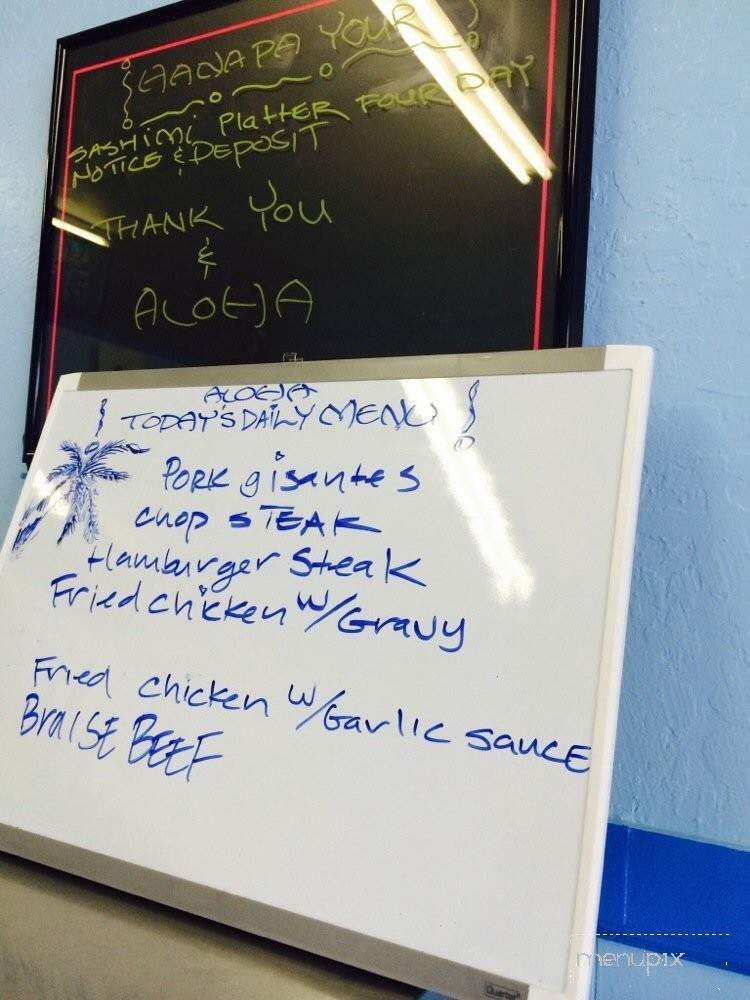 HANAPA YOUR
SASHIMI PLATTER FOUR DAY
NOTICE & DEPOSIT
THANK YOU
&
ALOHA
ALOHA
TODAY'S DAILY MENU
PORK gisantes
chop STEAK
Hamburger Steak
Fried chicken w/Gravy
Fried chicken w/Garlic sauce
BraiSE BEEF
Quartet
menupix